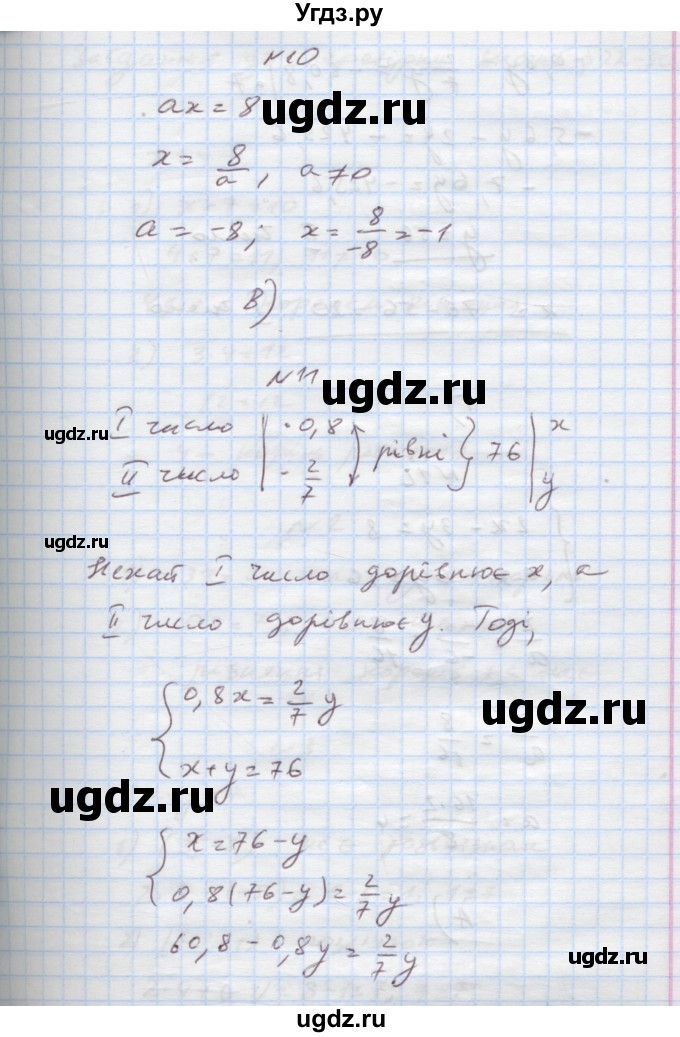 Угдз.ру
№10
ax = 8
ugdz.ru
x = 8/a, a ≠ 0
a = -8; x = 8/-8 = -1
В)
№11
ugdz.ru
ugdz.ru
I число | · 0,8 рівні } 76 | x
II число | · 2/7 y
ugdz.ru
Нехай I число дорівнює x, а
II число дорівнює y. Тоді,
{ 0,8x = 2/7 y
ugdz.ru
x + y = 76
ugdz.ru
{ x = 76 - y
0,8(76 - y) = 2/7 y
60,8 - 0,8y = 2/7 y
ugdz.ru
ugdz.ru